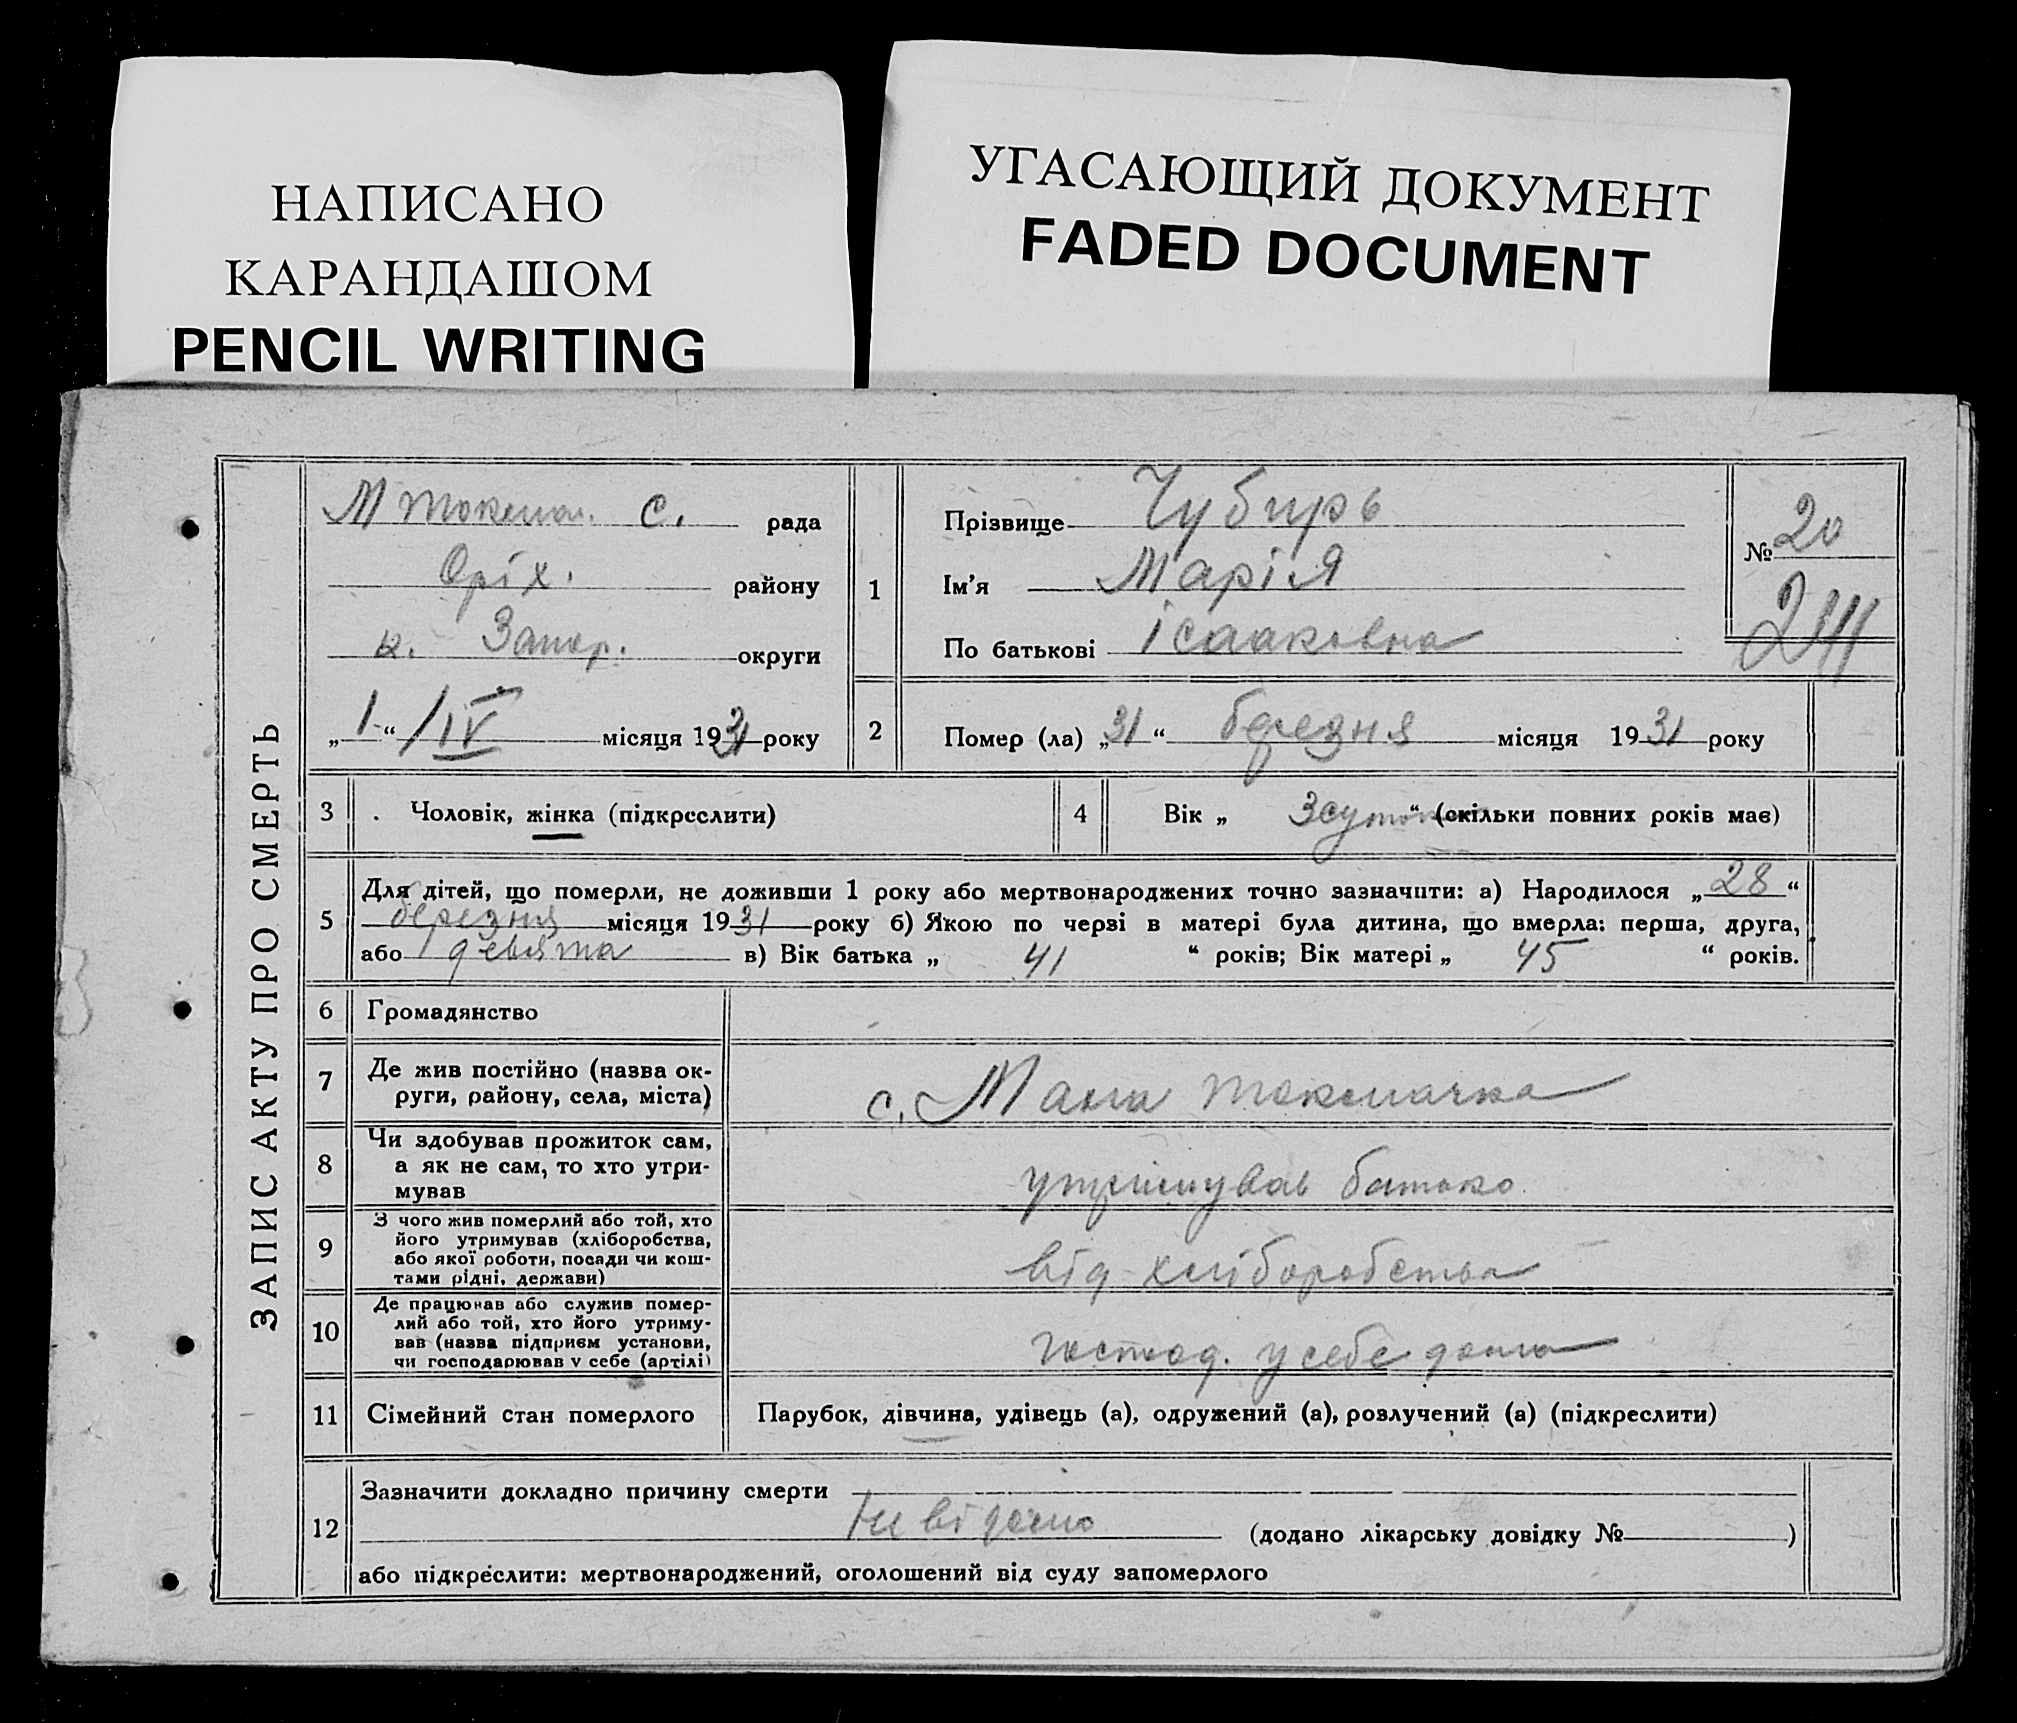 НАПИСАНО
КАРАНДАШОМ
PENCIL WRITING
УГАСАЮЩИЙ ДОКУМЕНТ
FADED DOCUMENT
ЗАПИС АКТУ ПРО СМЕРТЬ
М Токмац. С. рада
Оріх. району
к. Запор. округи
„1“ /IV місяця 1931 року
1
Прізвище Чубирь
Ім'я Марія
По батькові Ісааковна
№ 20
2
Помер (ла) „31“ березня місяця 1931 року
3 Чоловік, жінка (підкреслити)
4 Вік „ 3 суток “ (скільки повних років має)
5 Для дітей, що померли, не доживши 1 року або мертвонароджених точно зазначити: а) Народилося „28“
березня місяця 1931 року б) Якою по черзі в матері була дитина, що вмерла: перша, друга,
або девята в) Вік батька „ 41 “ років; Вік матері „ 45 “ років.
6 Громадянство
7 Де жив постійно (назва ок-
руги, району, села, міста)
с. Мала Токмачка
8 Чи здобував прожиток сам,
а як не сам, то хто утри-
мував
утримував батько
9 З чого жив померлий або той, хто
його утримував (хліборобства,
або якої роботи, посади чи кош-
тами рідні, держави)
від хліборобства
10 Де працював або служив помер-
лий або той, хто його утриму-
вав (назва підприєм установи,
чи господарював у себе (артілі)
господ. у себе дома
11 Сімейний стан померлого
Парубок, дівчина, удівець (а), одружений (а), розлучений (а) (підкреслити)
12 Зазначити докладно причину смерти
Невідомо (додано лікарську довідку № )
або підкреслити: мертвонароджений, оголошений від суду запомерлого